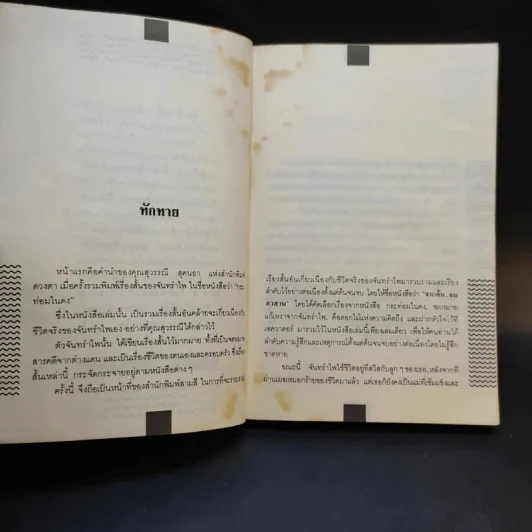 ทักทาย
หน้าแรกคือคำนำของคุณสุวรรณี สุคนธา แห่งสำนักพิมพ์
ดวงตา เมื่อครั้งรวมพิมพ์เรื่องสั้นของจันทรำไพ ในชื่อหนังสือว่า "กระ
ท่อมในดง"
ซึ่งในหนังสือเล่มนั้น เป็นรวมเรื่องสั้นอันคล้ายจะเกี่ยวเนื่องกับ
ชีวิตจริงของจันทรำไพเอง อย่างที่คุณสุวรรณีได้กล่าวไว้
ตัวจันทรำไพนั้น ได้เขียนเรื่องสั้นไว้มากมาย ทั้งที่เป็นจดหมาย
สารคดีจากต่างแดน และเป็นเรื่องชีวิตของตนเองและครอบครัว ซึ่งเรื่อง
สั้นเหล่านี้ กระจัดกระจายอยู่ตามหนังสือต่าง ๆ
ครั้งนี้ จึงถือเป็นหน้าที่ของสำนักพิมพ์สามสี ในการที่จะรวบรวม
เรื่องสั้นอันเกี่ยวเนื่องกับชีวิตจริงของจันทรำไพมารวบรวมและเรียง
ลำดับไว้อย่างต่อเนื่องตั้งแต่ต้นจนจบ โดยให้ชื่อหนังสือว่า
โดยได้คัดเลือกเรื่องจากหนังสือ กระท่อมในดง, จดหมาย
แก้เหงาจากจันทรำไพ, คือดอกไม้แห่งความคิดถึง และฝากหัวใจไว้ที่
เชควาดอร์ มารวมไว้ในหนังสือเล่มนี้เพียงเล่มเดียว เพื่อให้คนอ่านได้
ลำดับความรู้สึกและเหตุการณ์ตั้งแต่ต้นจนจบอย่างต่อเนื่องโดยไม่รู้สึก
ขาดหาย
ขณะนี้ จันทรำไพใช้ชีวิตอยู่ที่สวิสกับลูก ๆ ของเธอ หลังจากที่
ผ่านเมฆหมอกร้ายของชีวิตมาแล้ว แต่เธอก็ยังคงเป็นแม่ที่เข้มแข็งและ